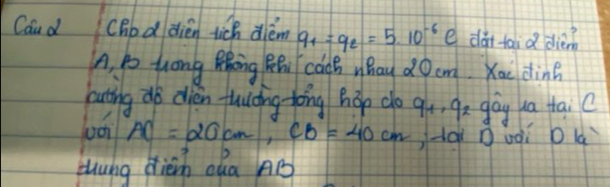 Câu 2 Cho 2 điện tích điểm q₁ = q₂ = 5.10⁻⁶ C đặt tại 2 điểm
A, B trong không khí cách nhau 20cm. Xác định
cường độ điện trường tổng hợp do q₁, q₂ gây ra tại C
với AC = 20cm, CB = 40 cm, tại D với D là
trung điểm của AB